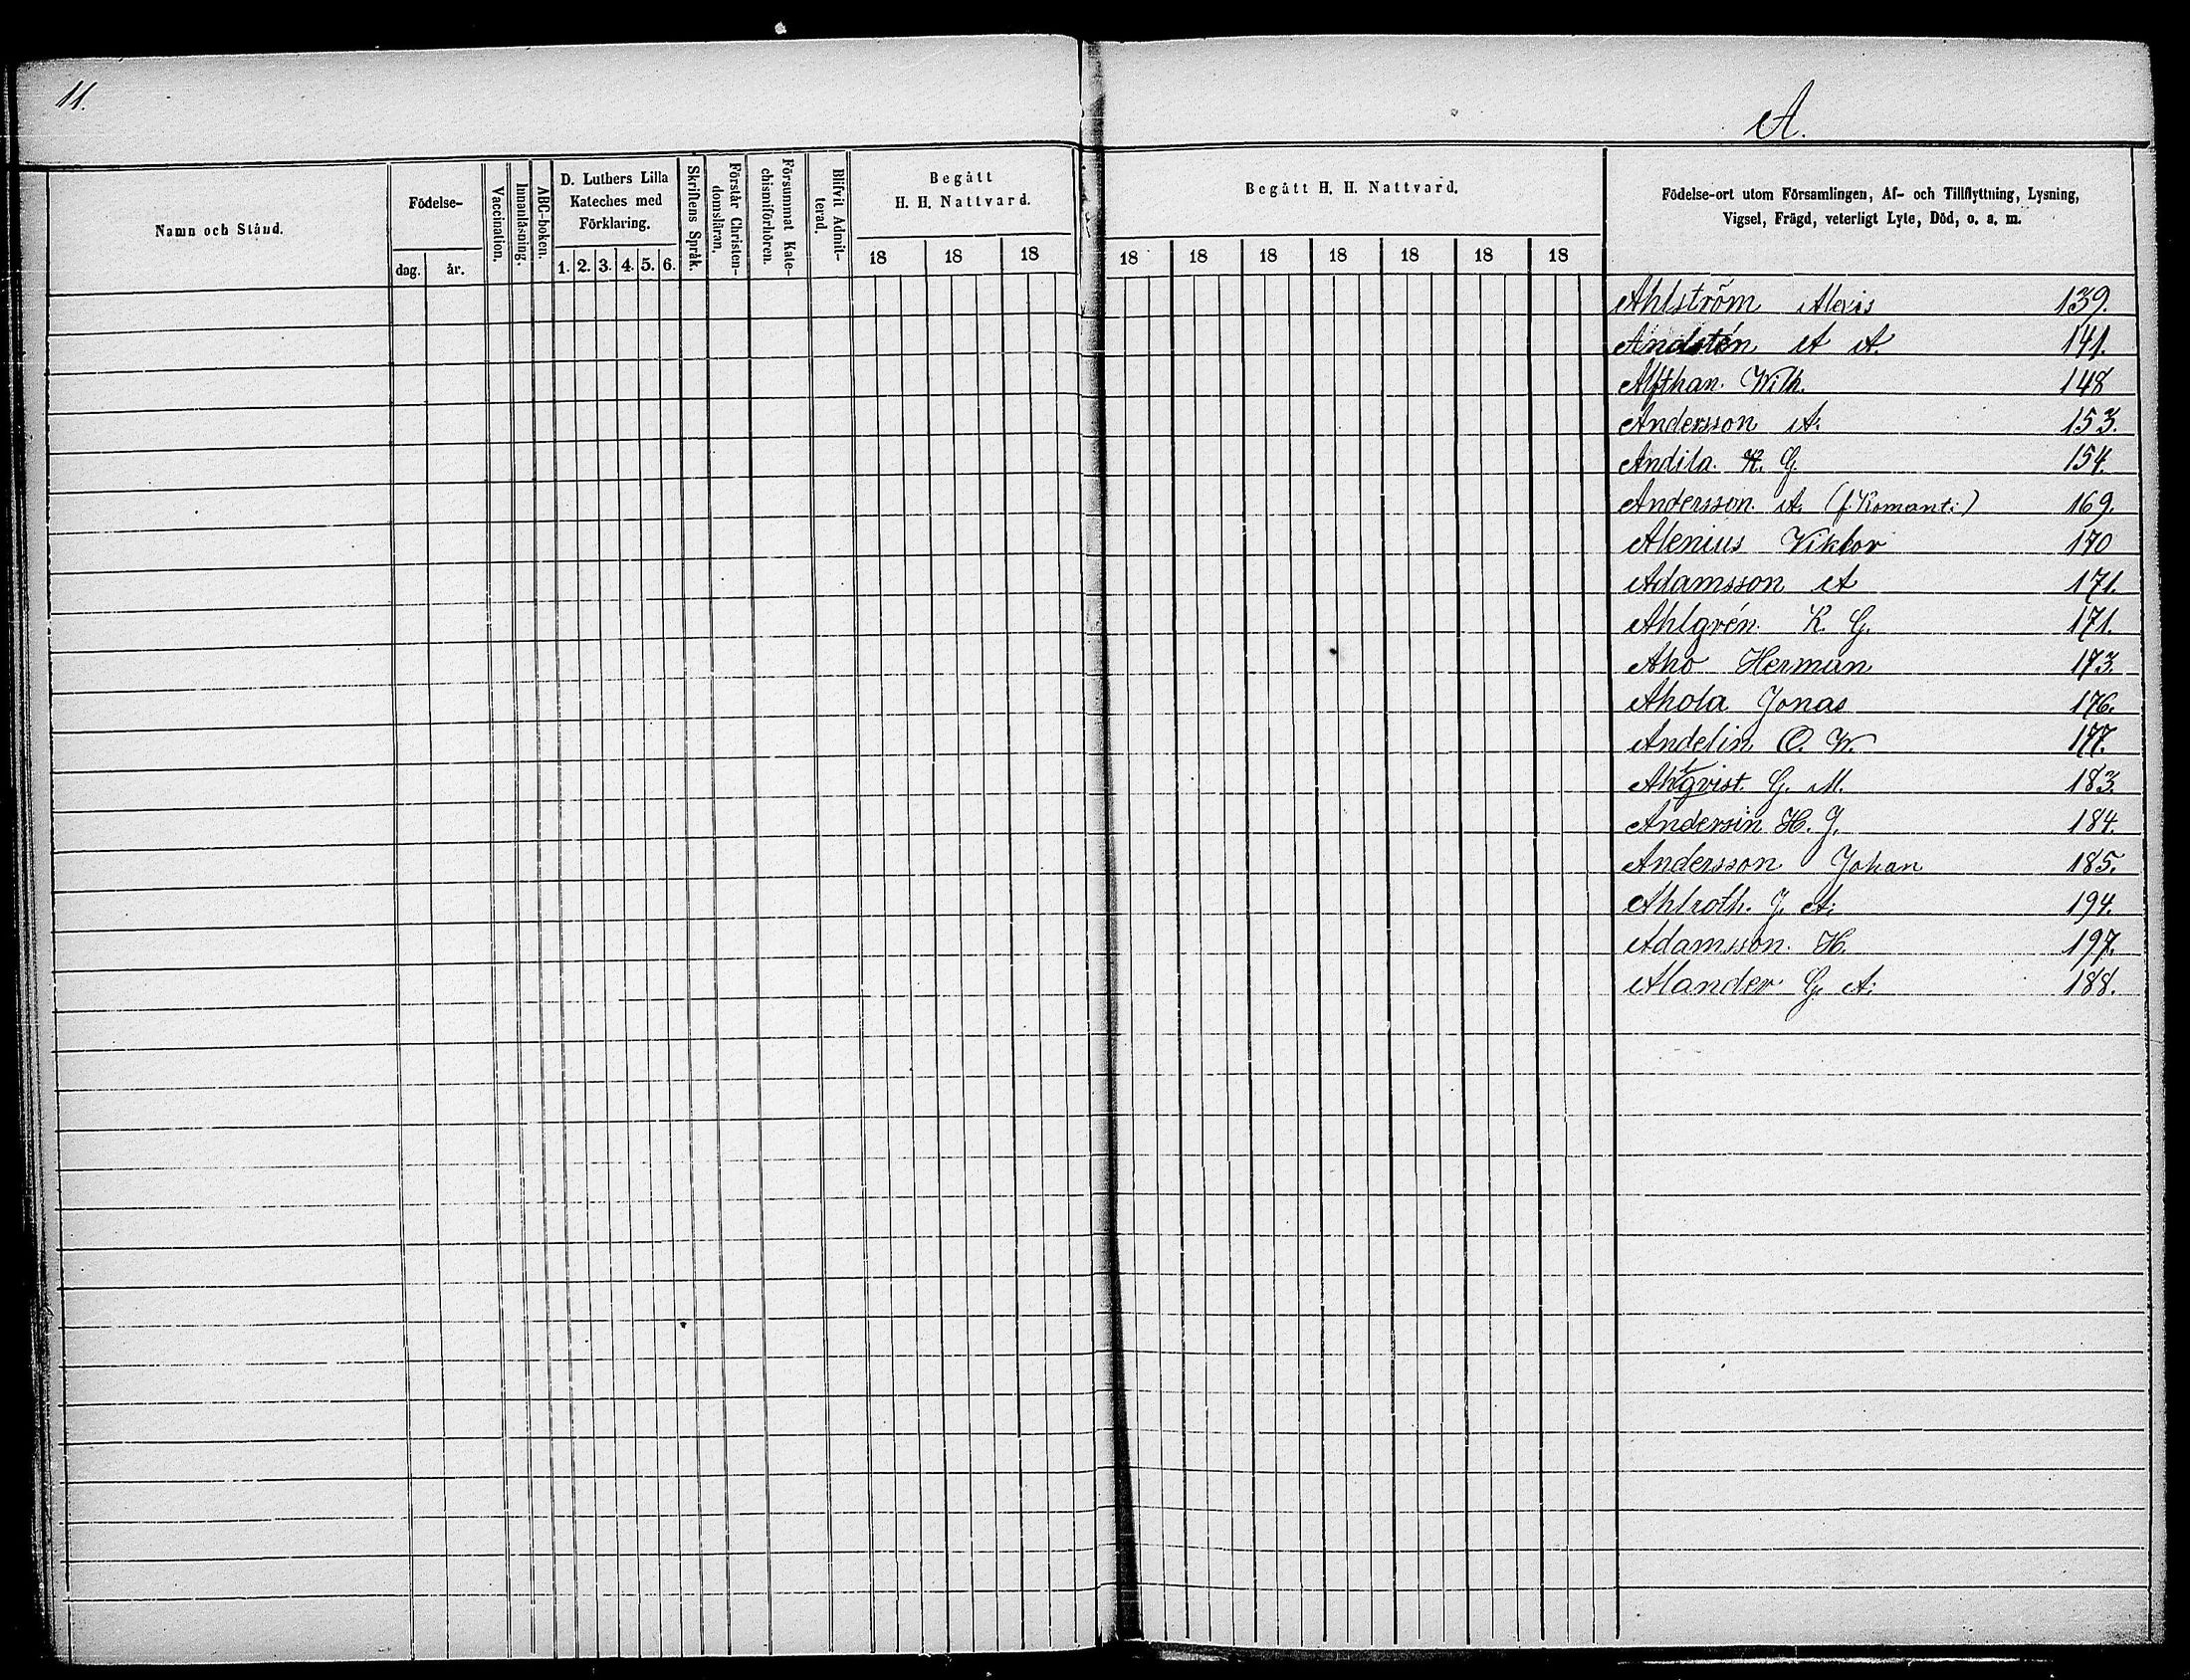 11.
A.
Namn och Stånd.
Födelse-
dag.
år.
Vaccination.
Innanläsning.
ABC-boken.
D. Luthers Lilla
Kateches med
Förklaring.
1. 2. 3. 4. 5. 6.
Skriftens Språk.
Förstår Christen-
domsläran.
Försummat Kate-
chismiförhören.
Blifvit Admit-
terad.
Begått
H. H. Nattvard.
18 18 18
Begått H. H. Nattvard.
18 18 18 18 18 18 18
Födelse-ort utom Församlingen, Af- och Tillflyttning, Lysning,
Vigsel, Frägd, veterligt Lyte, Död, o. a. m.
Ahlström Alexis 139.
Andstén A A. 141.
Alfthan. Wilh. 148
Andersson A. 153.
Andila. K. G. 154.
Andersson. A. (f. Komant:) 169.
Alenius Viktor 170
Adamsson A 171.
Ahlgrén. K. G. 171.
Aho Herman 173.
Ahola Jonas 176.
Andelin O. W. 177.
Ahlqvist. G. M. 183.
Andersin H. J. 184.
Andersson Johan 185.
Ahlroth. J. A. 194.
Adamsson. H. 197.
Alander G. A. 188.